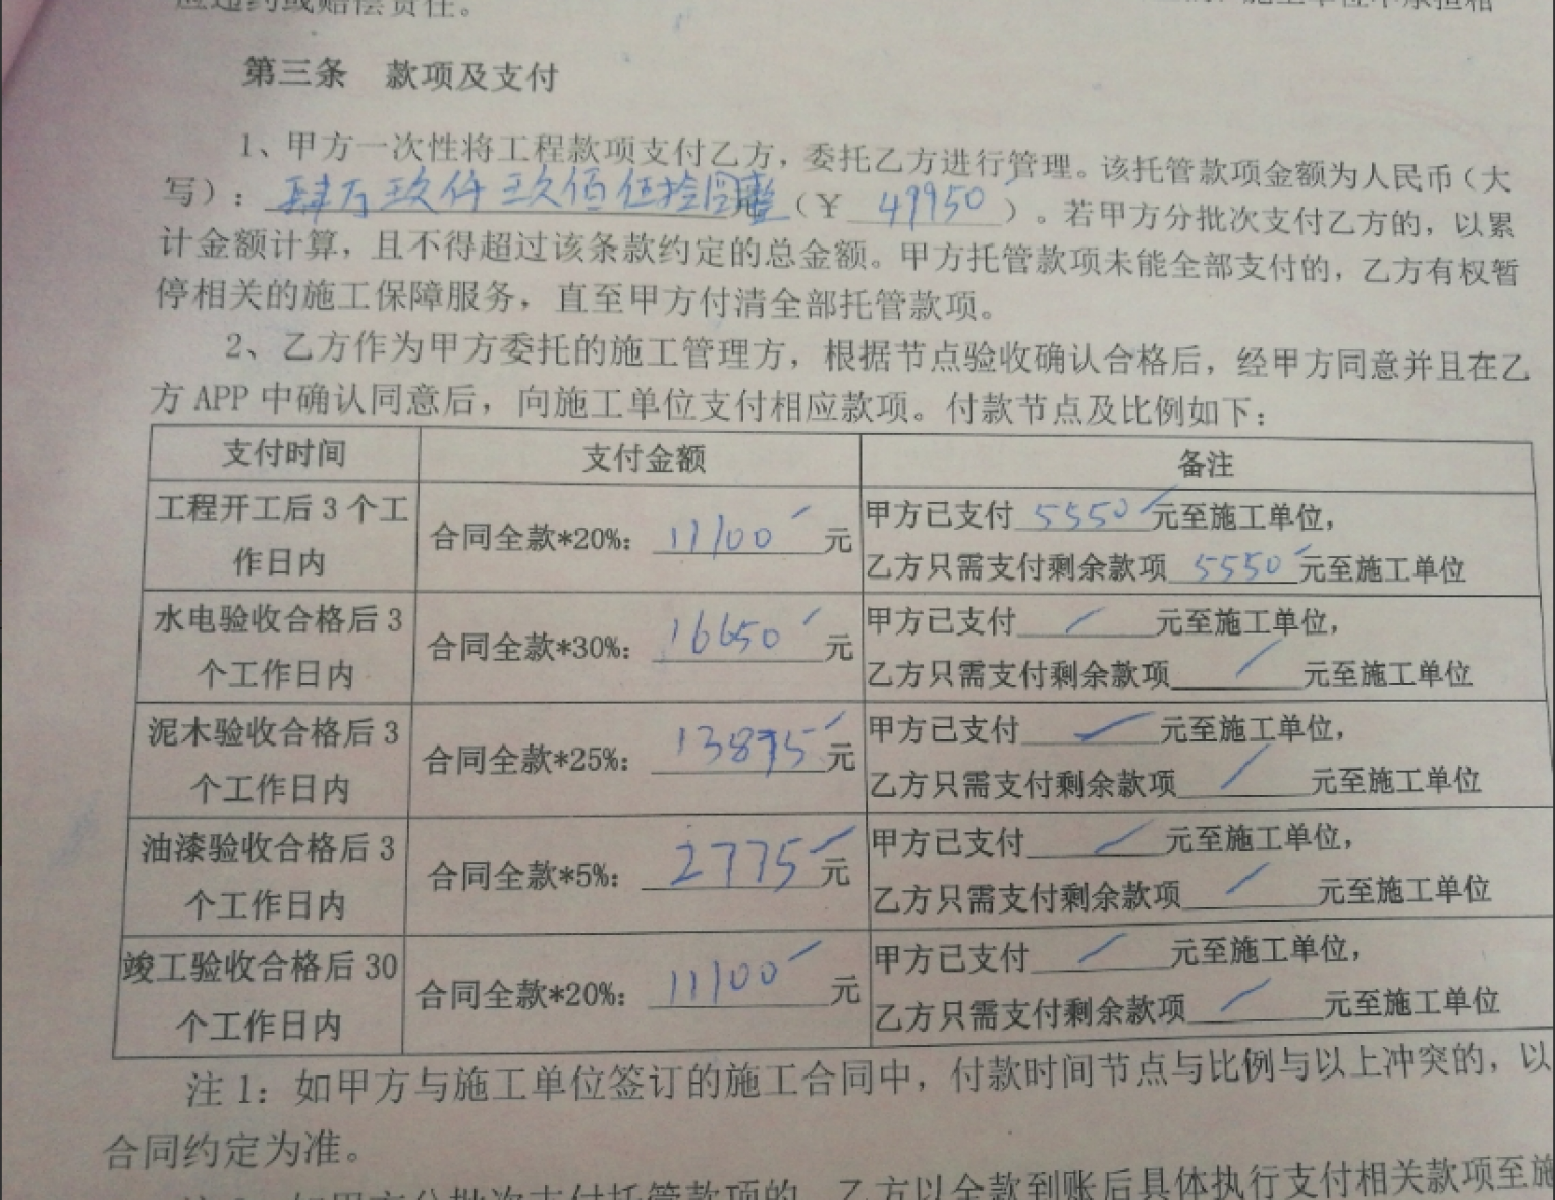 应违约或赔偿责任。
第三条 款项及支付
1、甲方一次性将工程款项支付乙方，委托乙方进行管理。该托管款项金额为人民币（大
写）：肆万玖仟玖佰伍拾圆整（¥ 49950 ）。若甲方分批次支付乙方的，以累
计金额计算，且不得超过该条款约定的总金额。甲方托管款项未能全部支付的，乙方有权暂
停相关的施工保障服务，直至甲方付清全部托管款项。
2、乙方作为甲方委托的施工管理方，根据节点验收确认合格后，经甲方同意并且在乙
方 APP 中确认同意后，向施工单位支付相应款项。付款节点及比例如下：
支付时间 支付金额 备注
工程开工后 3 个工
作日内
合同全款*20%: 11100 元
甲方已支付 5550 元至施工单位，
乙方只需支付剩余款项 5550 元至施工单位
水电验收合格后 3
个工作日内
合同全款*30%: 16650 元
甲方已支付 / 元至施工单位，
乙方只需支付剩余款项 / 元至施工单位
泥木验收合格后 3
个工作日内
合同全款*25%: 13875 元
甲方已支付 / 元至施工单位，
乙方只需支付剩余款项 / 元至施工单位
油漆验收合格后 3
个工作日内
合同全款*5%: 2775 元
甲方已支付 / 元至施工单位，
乙方只需支付剩余款项 / 元至施工单位
竣工验收合格后 30
个工作日内
合同全款*20%: 11100 元
甲方已支付 / 元至施工单位，
乙方只需支付剩余款项 / 元至施工单位
注 1：如甲方与施工单位签订的施工合同中，付款时间节点与比例与以上冲突的，以
合同约定为准。
如甲方分批次支付托管款项的，乙方以全款到账后具体执行支付相关款项至施